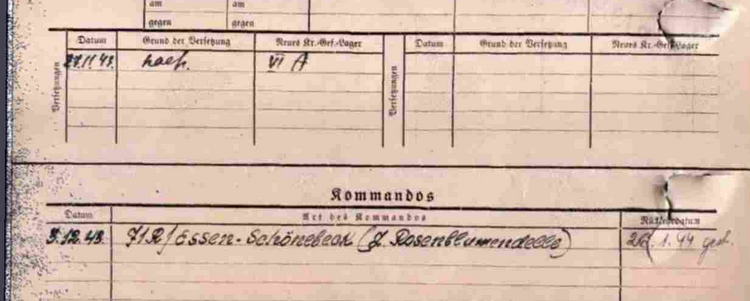 am am
gegen gegen
Datum Grund der Versetzung Neues Kr.-Gef.-Lager Datum Grund der Versetzung Neues Kr.-Gef.-Lager
Versetzungen 11.43. VI A Versetzungen
Kommandos
Datum Art des Kommandos Rückkehrdatum
3.12.43 Essen-Schönebeck (Z. Rosenblumendelle) 1.44